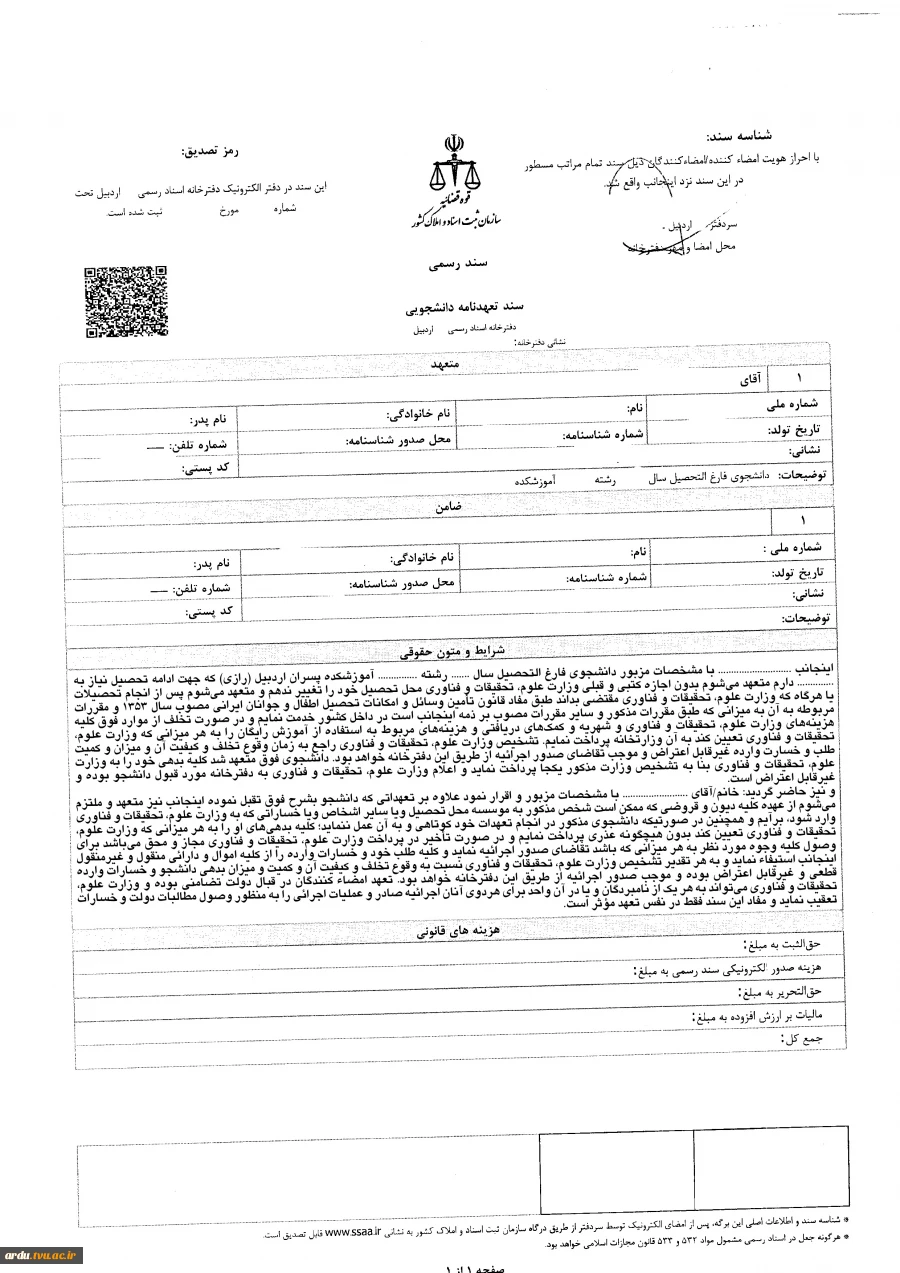 شناسه سند:
با احراز هویت امضاء کننده/امضاءکنندگان ذیل سند تمام مراتب مسطور
در این سند نزد اینجانب واقع شد.
سردفتر اردبیل .
محل امضا و مهر دفترخانه
قوه قضائیه
سازمان ثبت اسناد و املاک کشور
سند رسمی
سند تعهدنامه دانشجویی
دفترخانه اسناد رسمی اردبیل
نشانی دفترخانه:
رمز تصدیق:
این سند در دفتر الکترونیک دفترخانه اسناد رسمی اردبیل تحت
شماره مورخ ثبت شده است.
متعهد
۱ آقای
شماره ملی نام: نام خانوادگی: نام پدر:
تاریخ تولد: شماره شناسنامه: محل صدور شناسنامه: شماره تلفن: ---
نشانی: کد پستی:
توضیحات: دانشجوی فارغ التحصیل سال رشته آموزشکده
ضامن
۱
شماره ملی : نام: نام خانوادگی: نام پدر:
تاریخ تولد: شماره شناسنامه: محل صدور شناسنامه: شماره تلفن: ---
نشانی: کد پستی:
توضیحات:
شرایط و متون حقوقی
اینجانب .......................... با مشخصات مزبور دانشجوی فارغ التحصیل سال ...... رشته ............. آموزشکده پسران اردبیل (رازی) که جهت ادامه تحصیل نیاز به
............ دارم متعهد می‌شوم بدون اجازه کتبی و قبلی وزارت علوم، تحقیقات و فناوری محل تحصیل خود را تغییر ندهم و متعهد می‌شوم پس از انجام تحصیلات
یا هرگاه که وزارت علوم، تحقیقات و فناوری مقتضی بداند طبق مفاد قانون تأمین وسائل و امکانات تحصیل اطفال و جوانان ایرانی مصوب سال ۱۳۵۳ و مقررات
مربوطه به آن به میزانی که طبق مقررات مذکور و سایر مقررات مصوب بر ذمه اینجانب است در داخل کشور خدمت نمایم و در صورت تخلف از موارد فوق کلیه
هزینه‌های وزارت علوم، تحقیقات و فناوری و شهریه و کمک‌های دریافتی و هزینه‌های مربوط به استفاده از آموزش رایگان را به هر میزانی که وزارت علوم،
تحقیقات و فناوری تعیین کند به آن وزارتخانه پرداخت نمایم. تشخیص وزارت علوم، تحقیقات و فناوری راجع به زمان وقوع تخلف و کیفیت آن و میزان و کمیت
طلب و خسارت وارده غیرقابل اعتراض و موجب تقاضای صدور اجرائیه از طریق این دفترخانه خواهد بود. دانشجوی فوق متعهد شد کلیه بدهی خود را به وزارت
علوم، تحقیقات و فناوری بنا به تشخیص وزارت مذکور یکجا پرداخت نماید و اعلام وزارت علوم، تحقیقات و فناوری به دفترخانه مورد قبول دانشجو بوده و
غیرقابل اعتراض است.
و نیز حاضر گردید: خانم/آقای ....................... با مشخصات مزبور و اقرار نمود علاوه بر تعهداتی که دانشجو بشرح فوق تقبل نموده اینجانب نیز متعهد و ملتزم
می‌شوم از عهده کلیه دیون و قروضی که ممکن است شخص مذکور به موسسه محل تحصیل ویا سایر اشخاص ویا خساراتی که به وزارت علوم، تحقیقات و فناوری
وارد شود، برآیم و همچنین در صورتیکه دانشجوی مذکور در انجام تعهدات خود کوتاهی و به آن عمل ننماید؛ کلیه بدهی‌های او را به هر میزانی که وزارت علوم،
تحقیقات و فناوری تعیین کند بدون هیچگونه عذری پرداخت نمایم و در صورت تأخیر در پرداخت وزارت علوم، تحقیقات و فناوری مجاز و محق می‌باشد برای
وصول کلیه وجوه مورد نظر به هر میزانی که باشد تقاضای صدور اجرائیه نماید و کلیه طلب خود و خسارات وارده را از کلیه اموال و دارائی منقول و غیرمنقول
اینجانب استیفاء نماید و به هر تقدیر تشخیص وزارت علوم، تحقیقات و فناوری نسبت به وقوع تخلف و کیفیت آن و کمیت و میزان بدهی دانشجو و خسارات وارده
قطعی و غیرقابل اعتراض بوده و موجب صدور اجرائیه از طریق این دفترخانه خواهد بود. تعهد امضاء کنندگان در قبال دولت تضامنی بوده و وزارت علوم،
تحقیقات و فناوری می‌تواند به هر یک از نامبردگان و یا در آن واحد برای هردوی آنان اجرائیه صادر و عملیات اجرائی را به منظور وصول مطالبات دولت و خسارات
تعقیب نماید و مفاد این سند فقط در نفس تعهد مؤثر است.
هزینه های قانونی
حق‌الثبت به مبلغ:
هزینه صدور الکترونیکی سند رسمی به مبلغ:
حق‌التحریر به مبلغ:
مالیات بر ارزش افزوده به مبلغ:
جمع کل:
* شناسه سند و اطلاعات اصلی این برگه، پس از امضای الکترونیک توسط سردفتر از طریق درگاه سازمان ثبت اسناد و املاک کشور به نشانی www.ssaa.ir قابل تصدیق است.
* هرگونه جعل در اسناد رسمی مشمول مواد ۵۳۲ و ۵۳۳ قانون مجازات اسلامی خواهد بود.
صفحه ۱ از ۱
ardu.tvu.ac.ir